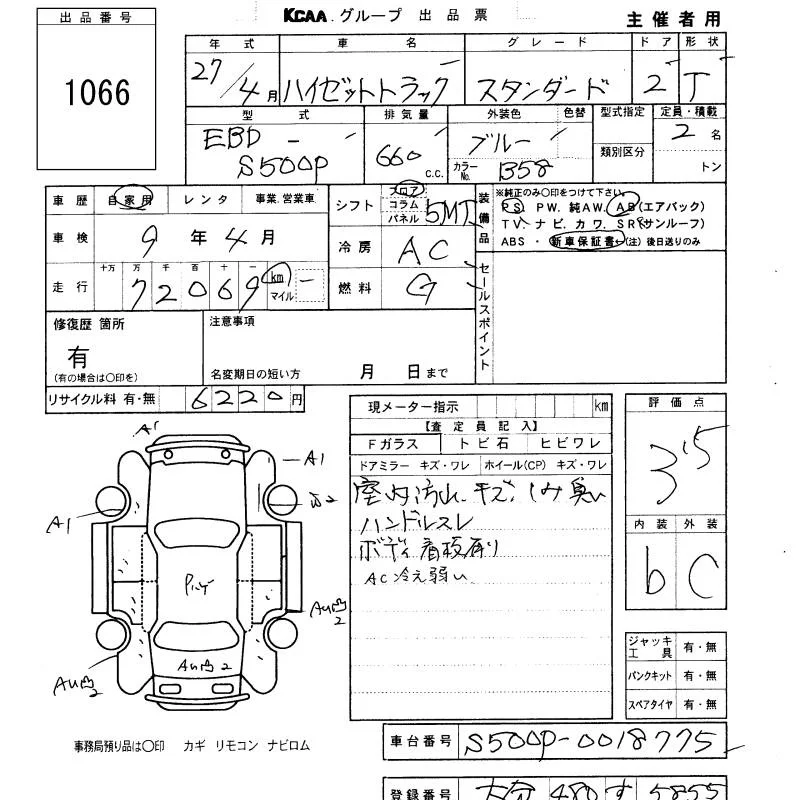 出品番号
1066
KCAA.グループ 出品票
主催者用
年式 車名 グレード ドア 形状
27/4月 ハイゼットトラック スタンダード 2 T
型式 排気量 外装色 色替 型式指定 定員・積載
EBD-S500P 660c.c. ブルー 類別区分 2名
カラーNo. B58 トン
車歴 自家用 レンタ 事業.営業車
シフト フロア コラム パネル 5MT
装備品 ※純正のみ○印をつけて下さい。
PS. PW. 純AW. AB(エアバック)
TV. ナビ. カワ. SR(サンルーフ)
ABS・新車保証書(注)後日送りのみ
車検 9年4月
冷房 AC
走行 十万 万 千 百 十 一
72069 km マイル
燃料 G
セールスポイント
修復歴 箇所
有
(有の場合は○印を)
注意事項
名変期日の短い方 月 日まで
リサイクル料 有・無 6220円
現メーター指示 km
【査定員記入】
Fガラス トビ石 ヒビワレ
ドアミラー キズ・ワレ ホイール(CP) キズ・ワレ
室内汚れ.キズ.しみ 臭い
ハンドルスレ
ボディ看板有り
AC冷え弱い
評価点
3.5
内装 外装
b C
A1
A1
A1
2
AU凹2
AU凹2
AU凹2
ジャッキ工具 有・無
パンクキット 有・無
スペアタイヤ 有・無
事務局預り品は○印 カギ リモコン ナビロム
車台番号 S500P-0018775
登録番号 大分 480 す 5855